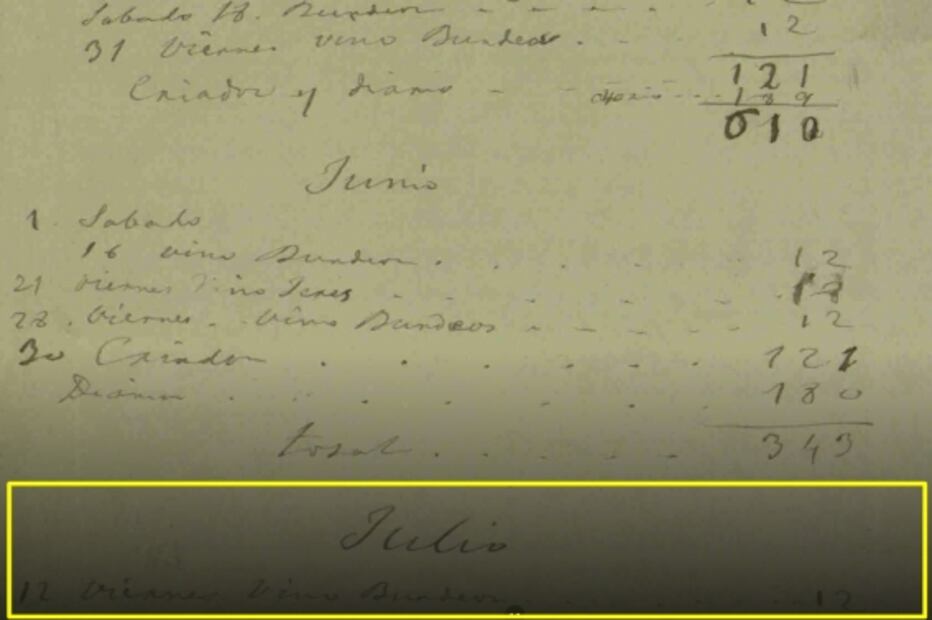 Sabado 18. Burdeos
12
31 Viernes vino Burdeos
121
Criados y diario 189
610
Junio
1. Sabado
16 vino Burdeos 12
21 Viernes Vino Jeres
28. Viernes. Vino Burdeos 12
30 Criados 121
Diario 180
total 343
Julio
12 Viernes Vino Burdeos 12